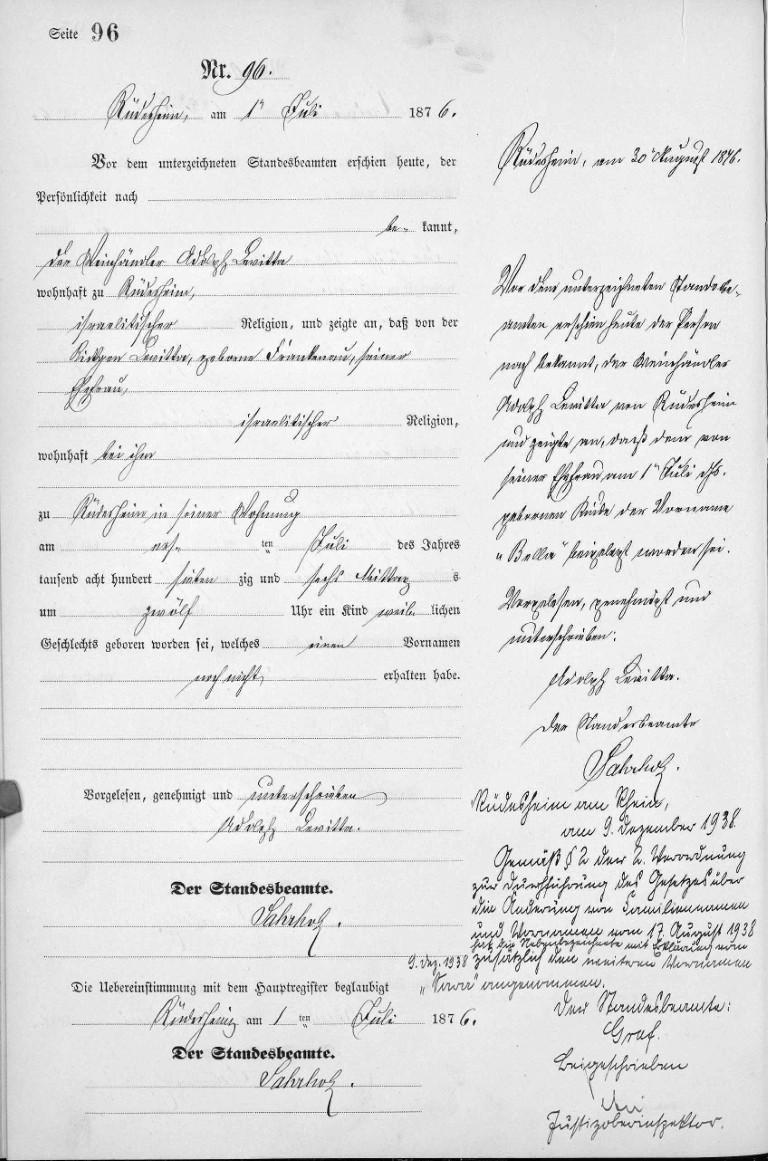 Seite 96
Nr. 96.
Rüdesheim, am 1ten Juli 1876.
Vor dem unterzeichneten Standesbeamten erschien heute, der
Persönlichkeit nach
be- kannt,
der Weinhändler Adolph Levitta
wohnhaft zu Rüdesheim,
israelitischer Religion, und zeigte an, daß von der
Levitta, geborene Frankenau, seiner
Ehefrau,
israelitischer Religion,
wohnhaft bei ihm
zu Rüdesheim in seiner Wohnung
am ers- ten Juli des Jahres
tausend acht hundert sieben zig und sechs Mittags
um zwölf Uhr ein Kind weib- lichen
Geschlechts geboren worden sei, welches einen Vornamen
noch nicht erhalten habe.
Vorgelesen, genehmigt und unterschrieben
Adolph Levitta.
Der Standesbeamte.
Die Uebereinstimmung mit dem Hauptregister beglaubigt
Rüdesheim am 1 ten Juli 1876.
Der Standesbeamte.
Rüdesheim, am 30ten August 1876.
Vor dem unterzeichneten Standesbe-
amten erschien heute der Person
nach bekannt, der Weinhändler
Adolph Levitta von Rüdesheim
und zeigte an, daß dem von
seiner Ehefrau am 1ten Juli djs.
geborenen Kinde der Vorname
„Bella" beigelegt worden sei.
Vorgelesen, genehmigt und
unterschrieben:
Adolph Levitta.
Der Standesbeamte
Rüdesheim am Rhein,
am 9. Dezember 1938.
Gemäß § 2 der 2. Verordnung
zur Durchführung des Gesetzes über
die Änderung von Familiennamen
und Vornamen vom 17. August 1938
hat die Nebenbezeichnete mit Erklärung vom
9. Dez. 1938 zusätzlich den weiteren Vornamen
„Sara" angenommen.
Der Standesbeamte:
Graf.
Beigeschrieben
Justizoberinspektor.